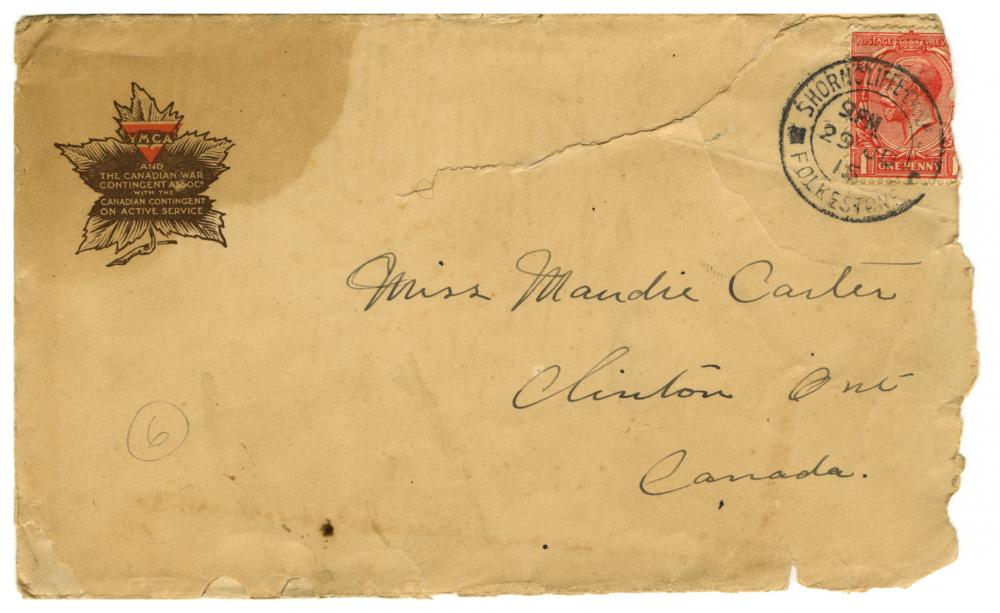 YMCA
AND
THE CANADIAN WAR
CONTINGENT ASSOCN
WITH THE
CANADIAN CONTINGENT
ON ACTIVE SERVICE
POSTAGE REV
ONE PENNY
SHORNCLIFFE
9 PM
29
15
FOLKESTONE
Miss Maudie Carter
Clinton Ont
Canada.
6